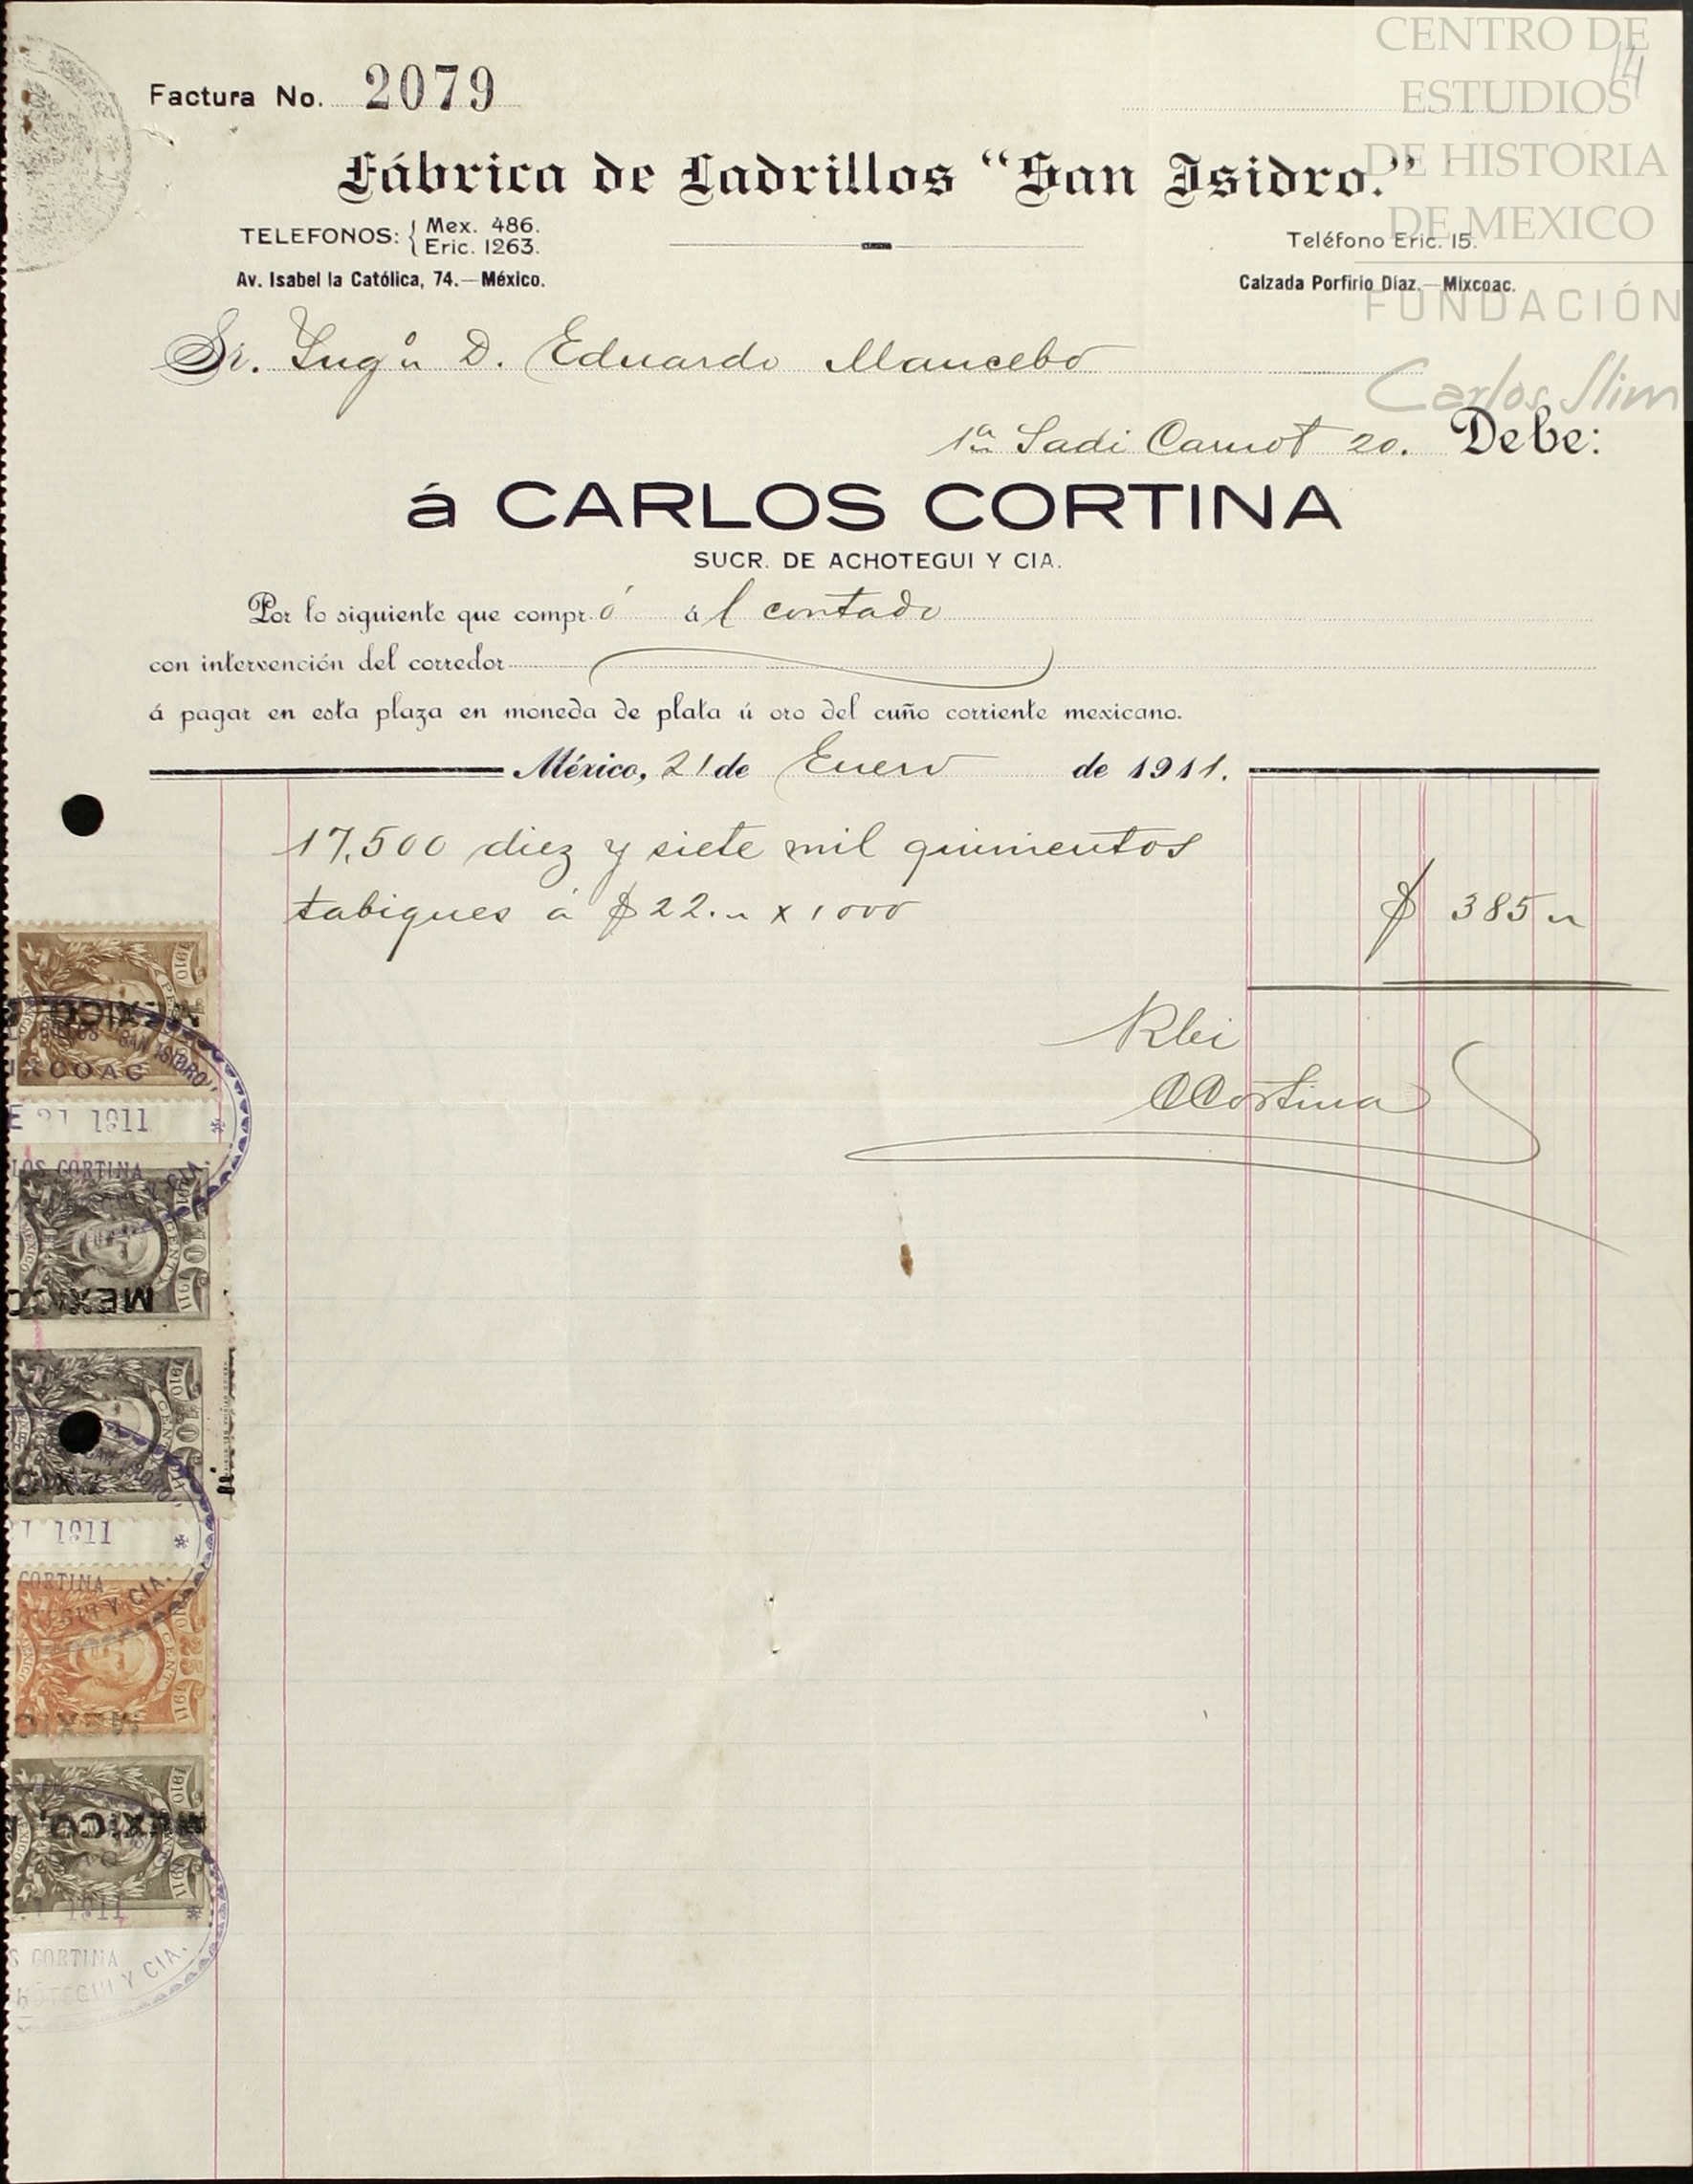 CENTRO DE
ESTUDIOS
DE HISTORIA
DE MEXICO
FUNDACIÓN
Carlos Slim
14
Factura No. 2079
Fábrica de Ladrillos "San Isidro."
TELEFONOS: { Mex. 486.
Eric. 1263.
Teléfono Eric. 15.
Av. Isabel la Católica, 74.—México.
Calzada Porfirio Díaz.—Mixcoac.
Sr. Ingº D. Eduardo Mancebo
1ª Sadi Carnot 20. Debe:
á CARLOS CORTINA
SUCR. DE ACHOTEGUI Y CIA.
Por lo siguiente que compró ál contado
con intervención del corredor
á pagar en esta plaza en moneda de plata ú oro del cuño corriente mexicano.
México, 21 de Enero de 1911.
17,500 diez y siete mil quinientos
tabiques á $22.— x 1000 $ 385 —
Rbi
CCortina
1910
MEXICO
SAN ISIDRO"
IXCOAC
E 21 1911
LOS CORTINA
Y CIA.
CENT
1911
MEXICO
1910
CENT
SAN ISIDRO"
1 1911
CORTINA
GUI Y CIA.
CENT
1911
1910
MEXICO,
1911
1911
S CORTINA
HOTEGUI Y CIA.